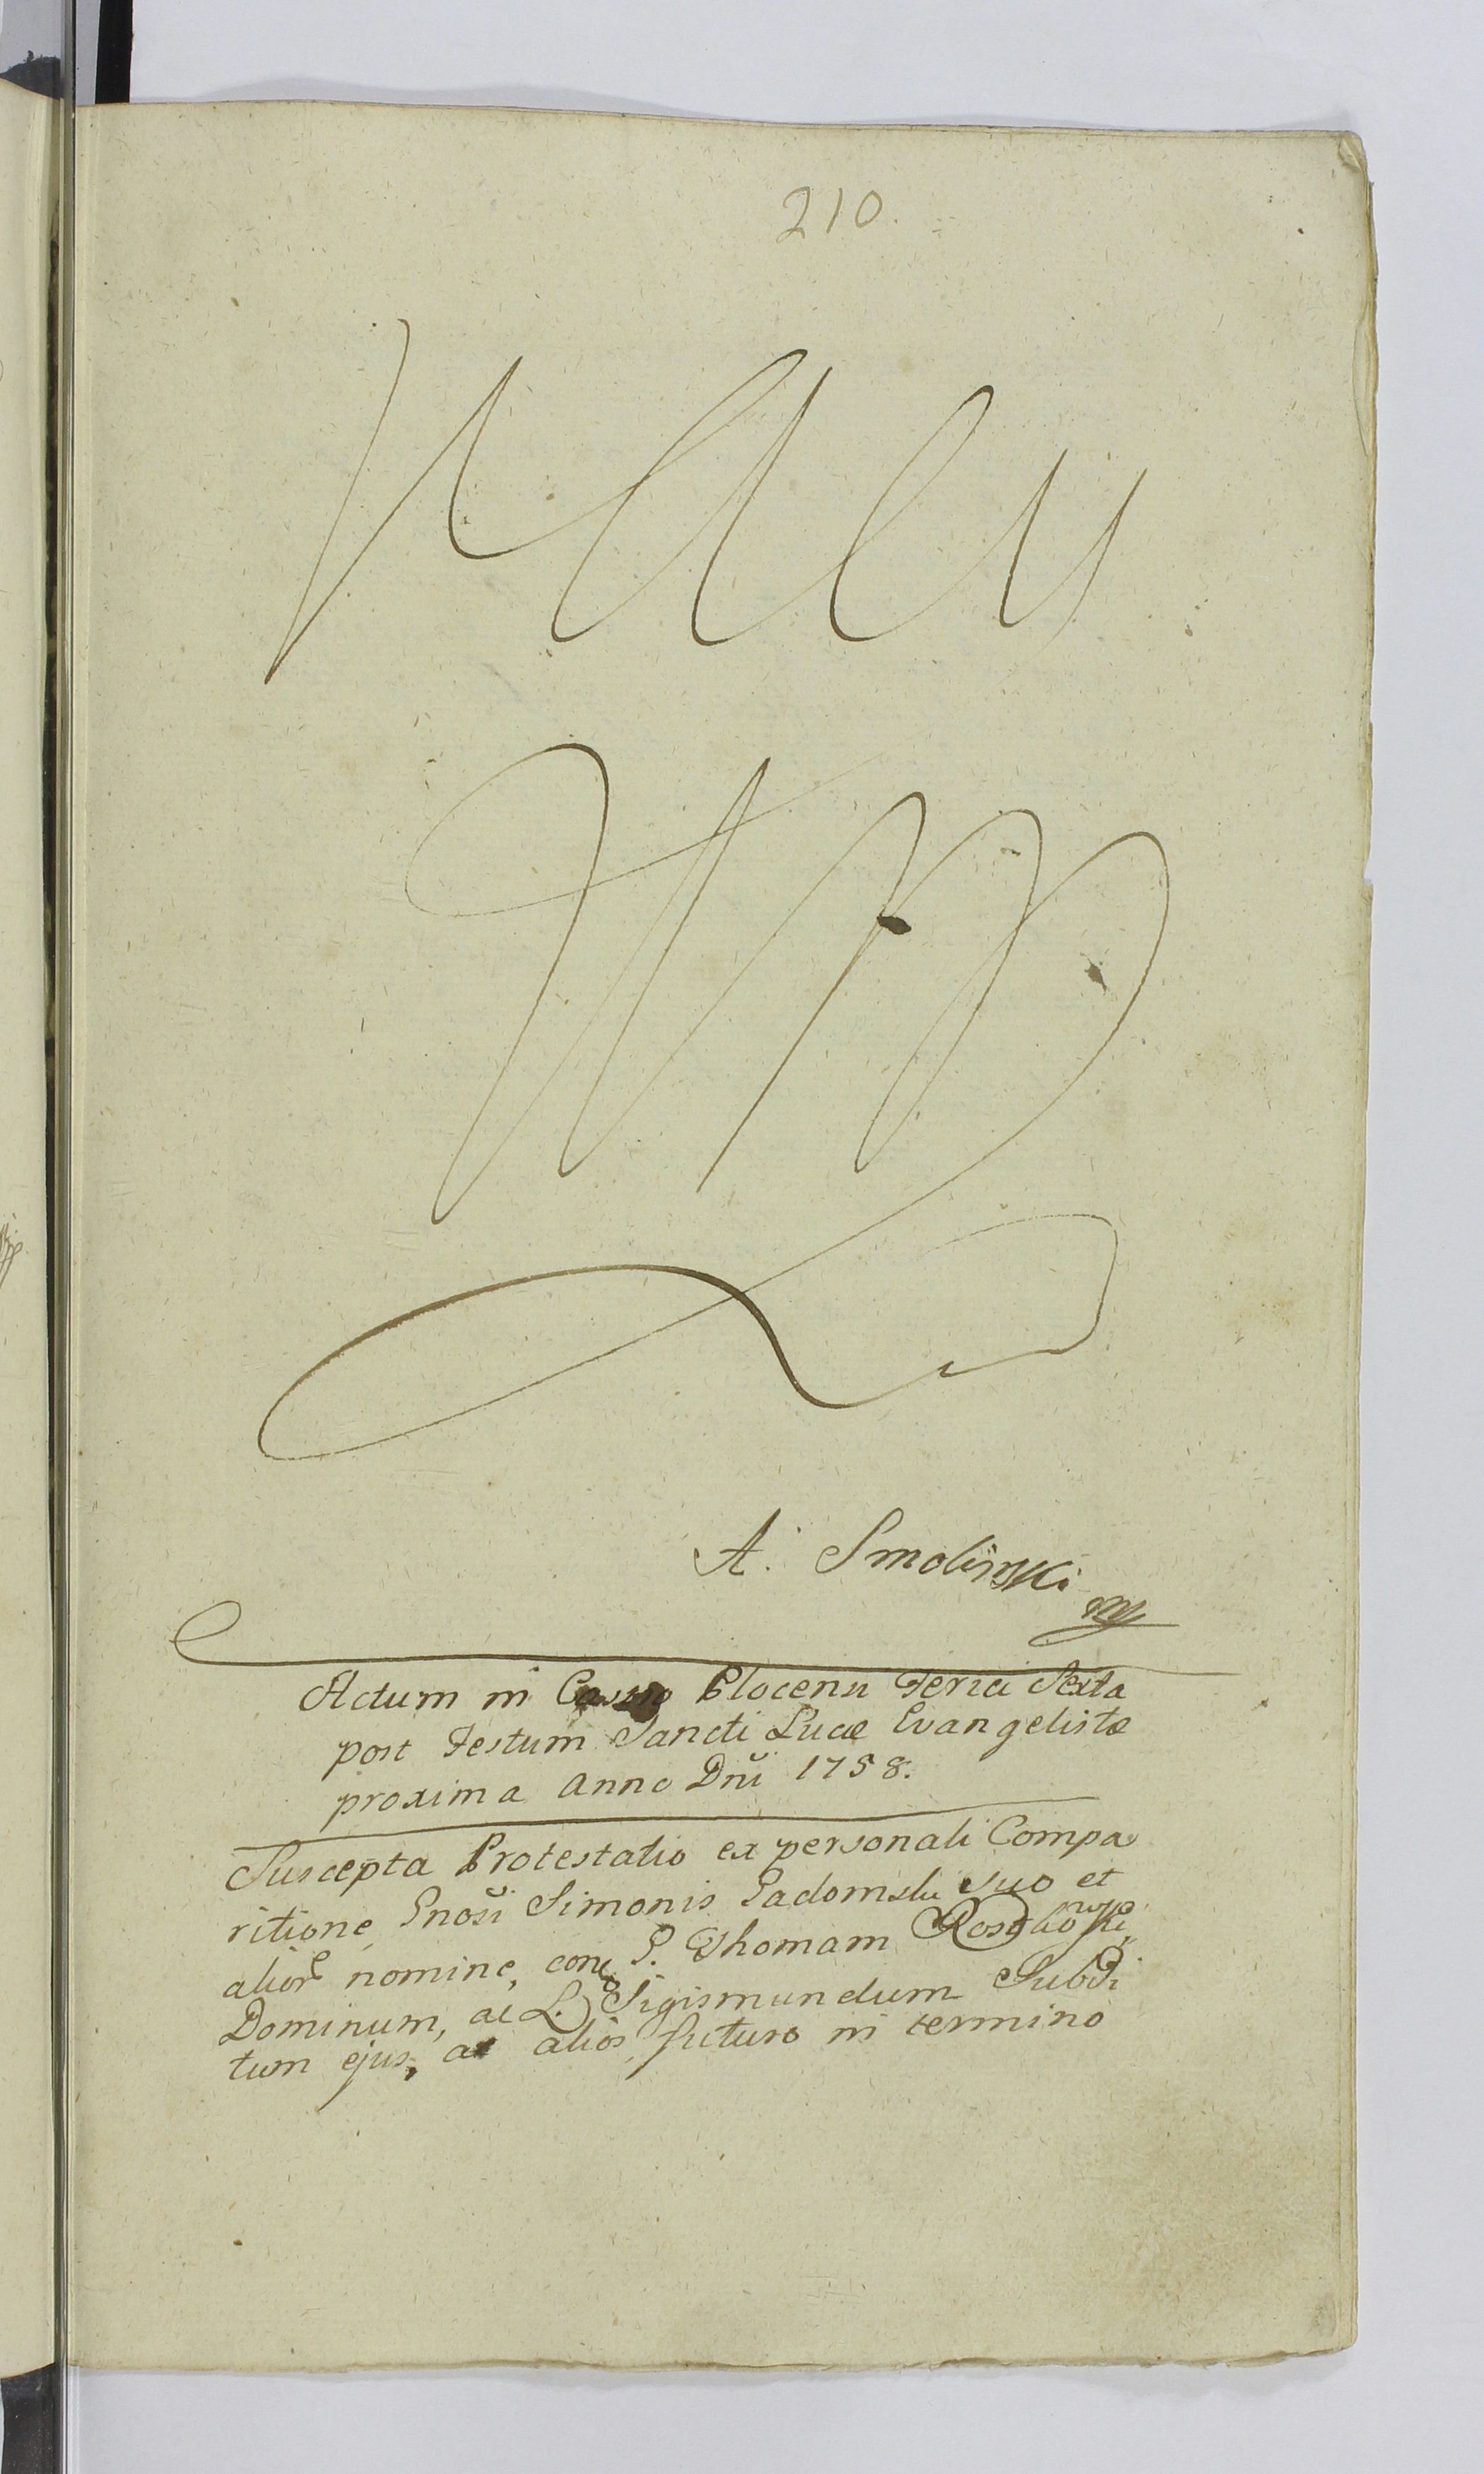 210.
A. Smolinski
mp
Actum in Castro Plocensi Feria Sexta
post Festum Sancti Lucæ Evangelistæ
proxima Anno Dni 1758.
Suscepta Protestatio ex personali Compa
ritione Gnosi Simonis Padomski suo et
alior nomine, con P. Thomam
Dominum, ac L. Sigismundum Subdi
tum ejus, ac alios, futuro in termino